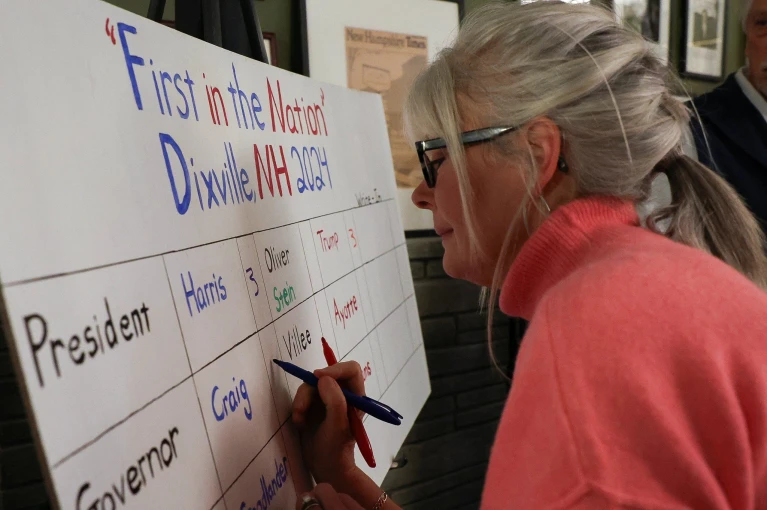 New Hampshire Times
"First in the Nation"
Dixville, NH 2024
Write-In
President Harris 3 Oliver Stein Trump 3
Governor Craig Villee Ayotte
Goodlander